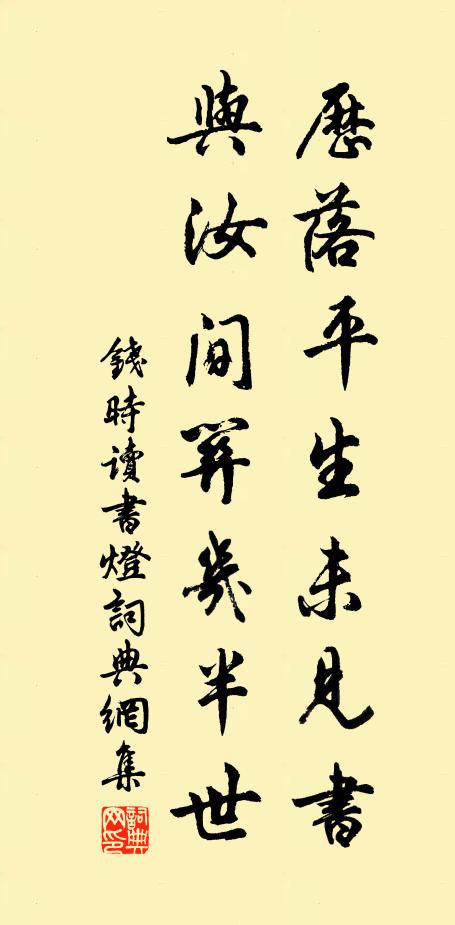 歷落平生未見書
與汝間關幾半世
錢時讀書燈詞典網集
詞典網印